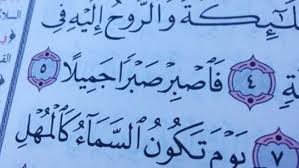 لَٰٓئِكَةُ وَٱلرُّوحُ إِلَيْهِ فِى
ةٍ ٤ فَٱصْبِرْ صَبْرًا جَمِيلًا ٥
٧ يَوْمَ تَكُونُ ٱلسَّمَآءُ كَٱلْمُهْلِ